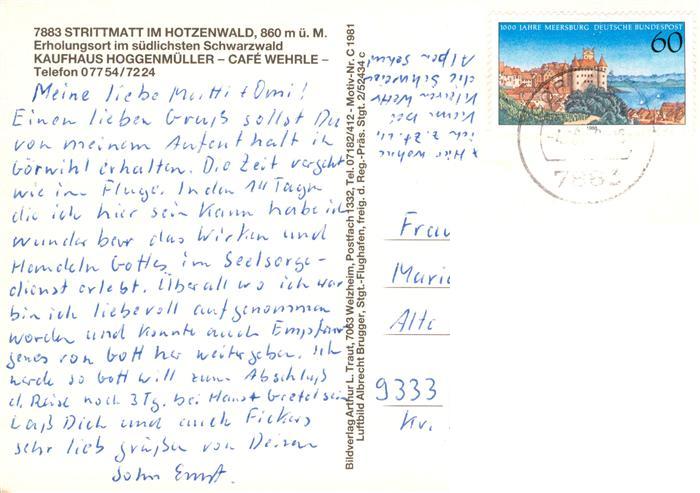 7883 STRITTMATT IM HOTZENWALD, 860 m ü. M.
Erholungsort im südlichsten Schwarzwald
KAUFHAUS HOGGENMÜLLER – CAFÉ WEHRLE –
Telefon 0 77 54 / 72 24
Meine liebe Mutti + Omi!
Einen lieben Gruß sollst Du
von meinem Aufenthalt in
Görwihl erhalten. Die Zeit vergeht
wie im Fluge. In den 14 Tagen
die ich hier sein kann habe ich
wunderbar das Wirken und
Handeln Gottes im Seelsorge-
dienst erlebt. Überall wo ich war
bin ich liebevoll aufgenommen
worden und konnte auch Empfan-
genes von Gott her weitergeben. Ich
werde so Gott will zum Abschluß
d. Reise noch 3 Tg. bei Hanst Gretel sein
Laß Dich und auch Fickers
sehr lieb grüßen von Deinem
Sohn Ernst.
Bildverlag Arthur L. Traut, 7063 Welzheim, Postfach 1332, Tel. 07182/412 - Motiv-Nr. C 1981
Luftbild Albrecht Brugger, Stgt.-Flughafen, freig. d. Reg.-Präs. Stgt. 2/52434 c
x Hier wohne
ich z. Zt.
Kann bei
klarem Wetter
die Schweizer
Alpen sehn
1000 JAHRE MEERSBURG DEUTSCHE BUNDESPOST
60
1988
7883
Frau
Marie
Alte
9333